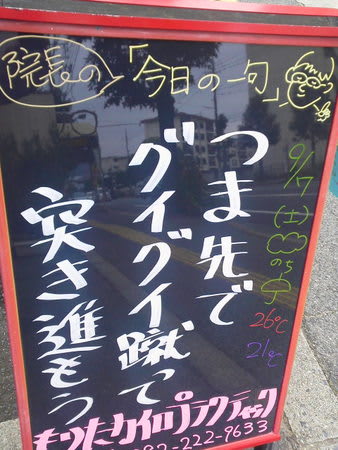 院長の「今日の一句」
9/7
(土)
のち
26℃
21℃
つま先で
グイグイ蹴って
突き進もう
カイロプラクティック
222-9633